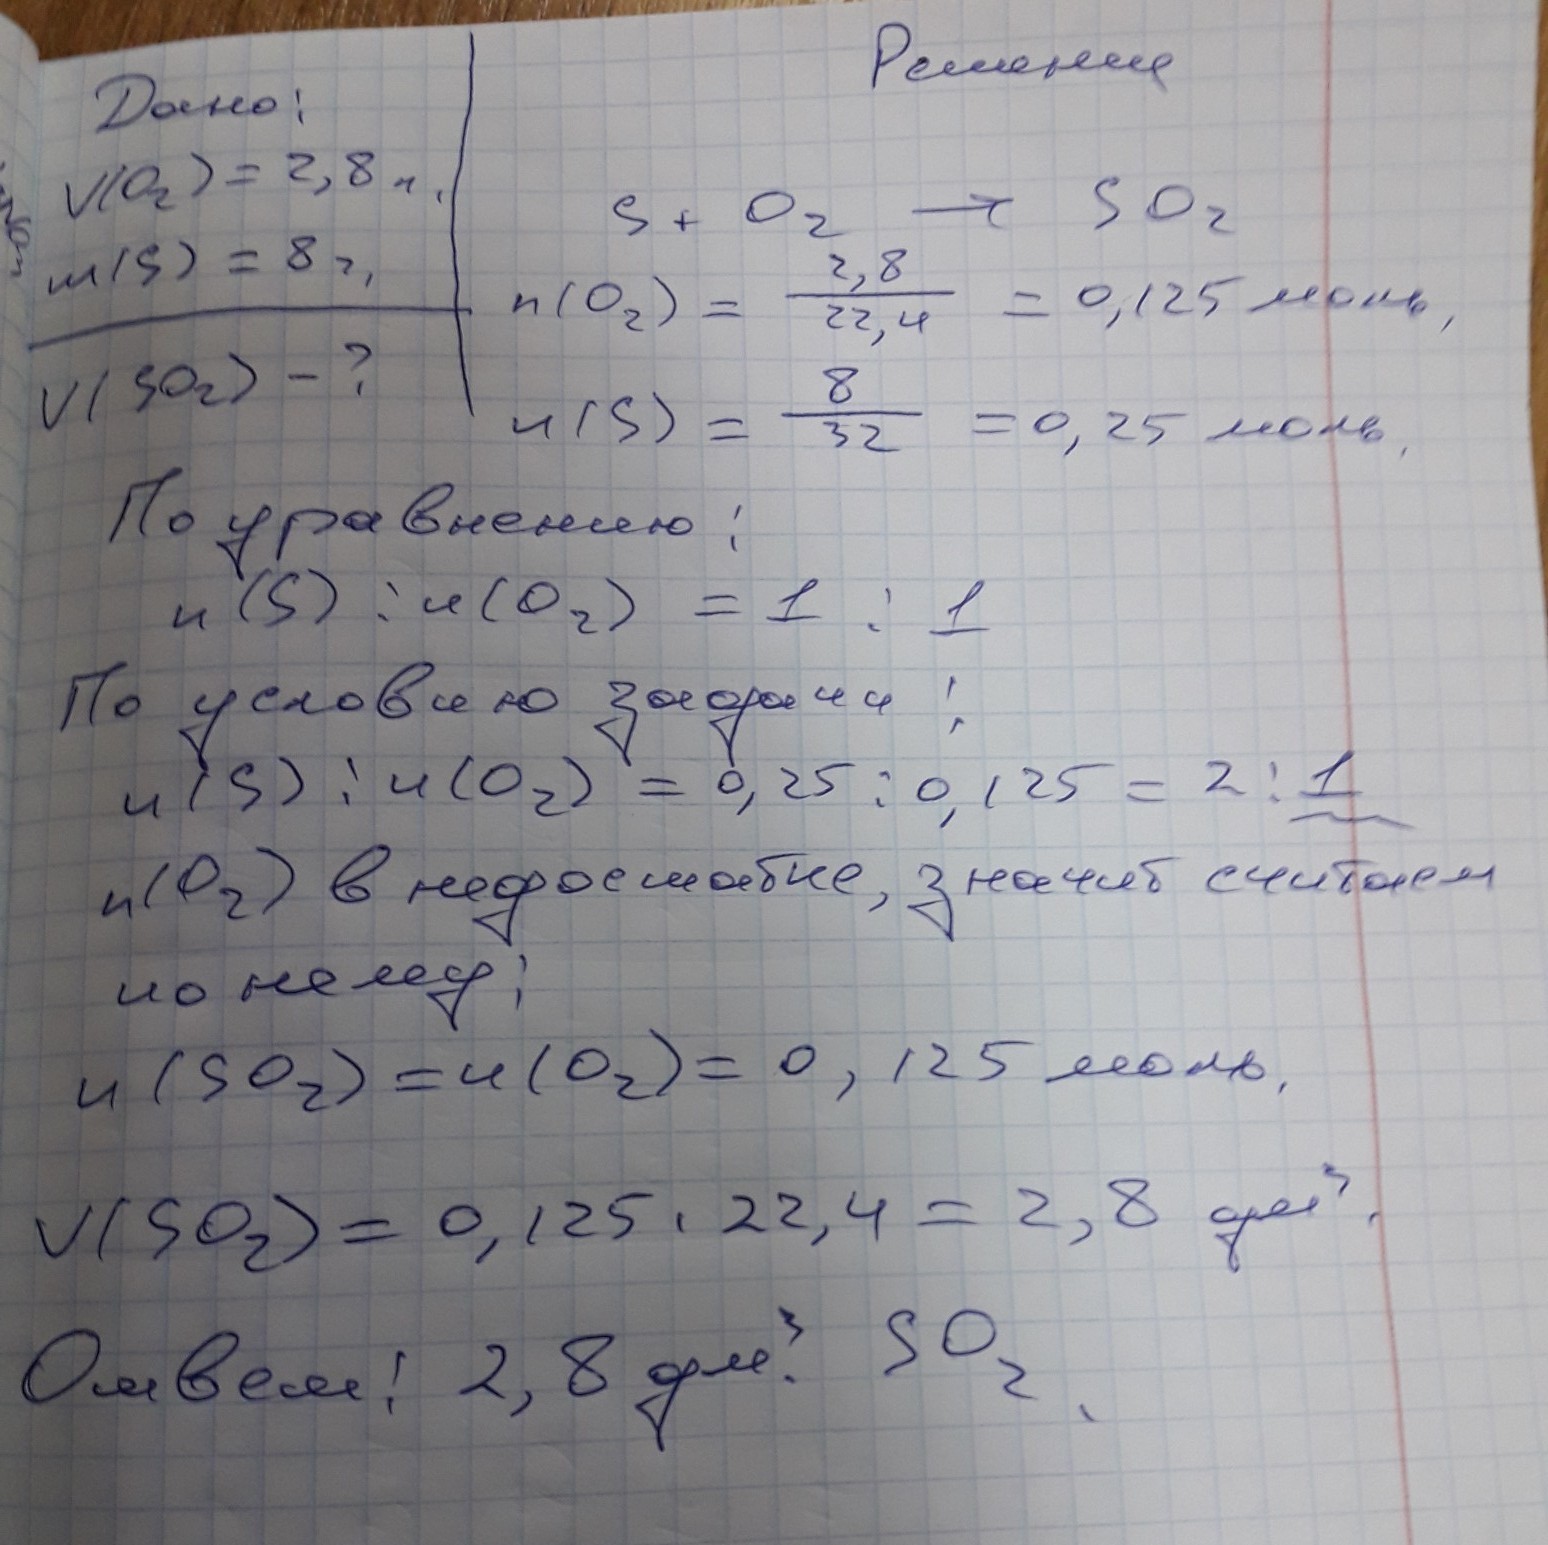 Дано:
V(O₂) = 2,8 л.
m(S) = 8 г.
V(SO₂) - ?
Решение
S + O₂ → SO₂
n(O₂) = 2,8/22,4 = 0,125 моль.
n(S) = 8/32 = 0,25 моль.
По уравнению:
n(S) : n(O₂) = 1 : 1
По условию задачи:
n(S) : n(O₂) = 0,25 : 0,125 = 2 : 1
n(O₂) в недостатке, значит считаем
по нему:
n(SO₂) = n(O₂) = 0,125 моль.
V(SO₂) = 0,125 · 22,4 = 2,8 дм³.
Ответ: 2,8 дм³. SO₂.